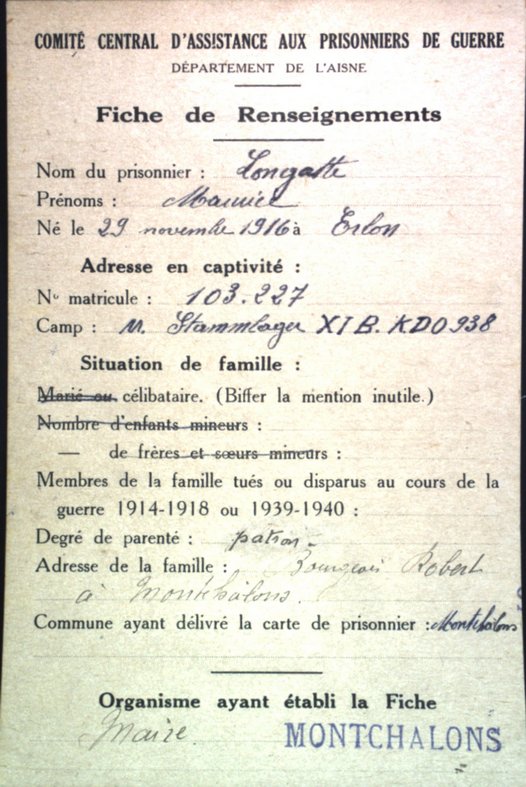 COMITÉ CENTRAL D'ASSISTANCE AUX PRISONNIERS DE GUERRE
DÉPARTEMENT DE L'AISNE
Fiche de Renseignements
Nom du prisonnier : Longatte
Prénoms : Maurice
Né le 29 novembre 1916 à Erlon
Adresse en captivité :
No matricule : 103.227
Camp : M. Stammlager XI B. KDO 938
Situation de famille :
Marié ou célibataire. (Biffer la mention inutile.)
Nombre d'enfants mineurs :
— de frères et sœurs mineurs :
Membres de la famille tués ou disparus au cours de la
guerre 1914-1918 ou 1939-1940 :
Degré de parenté : patron
Adresse de la famille : Bourgeois Robert
à Montchâlons.
Commune ayant délivré la carte de prisonnier : Montchâlons
Organisme ayant établi la Fiche
Maire MONTCHALONS